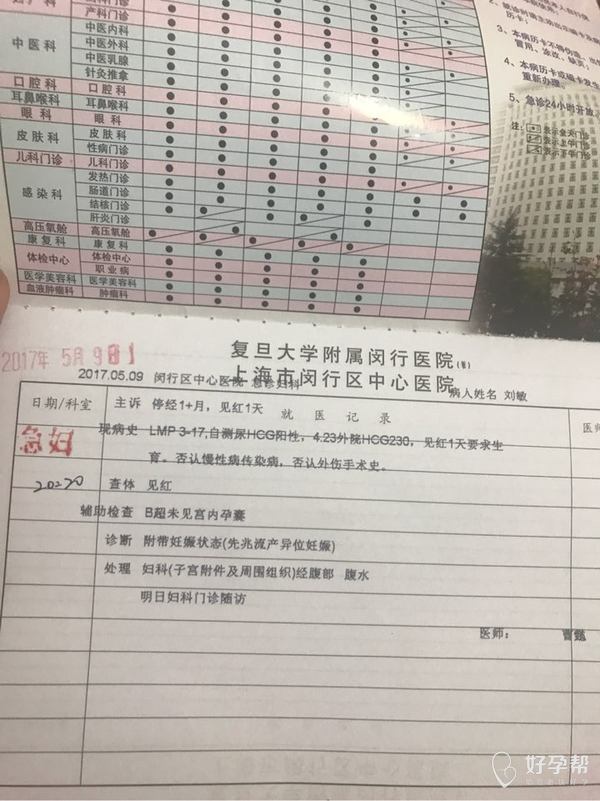 产科门诊
中医科 中医内科
中医外科
中医乳腺
针灸推拿
口腔科 口腔科
耳鼻喉科 耳鼻喉科
眼科 眼科
皮肤科 皮肤科
性病门诊
儿科门诊 儿科门诊
感染科 发热门诊
肠道门诊
结核门诊
肝炎门诊
高压氧舱 高压氧舱
康复科 康复科
体检中心 体检中心
职业病
医学美容科 医学美容科
血液肿瘤科 肿瘤科
历卡;
3、本病历卡不得伪造、
冒用,涂改,缺页;
4、本病历卡或磁卡发生
重新办理;
5、急诊24小时开放
注: 表示全天门诊
表示上午门诊
表示下午门诊
2017年 5月 9日
复旦大学附属闵行医院
上海市闵行区中心医院
2017.05.09 闵行区中心医院 急诊妇科
病人姓名 刘敏
日期/科室
就医记录
医师
主诉 停经1+月,见红1天
急诊
现病史 LMP 3-17,自测尿HCG阳性,4.23外院HCG230,见红1天要求生
育。否认慢性病传染病,否认外伤手术史。
查体 见红
辅助检查 B超未见宫内孕囊
诊断 附带妊娠状态(先兆流产异位妊娠)
处理 妇科(子宫附件及周围组织)经腹部 腹水
明日妇科门诊随访
医师:
好孕帮